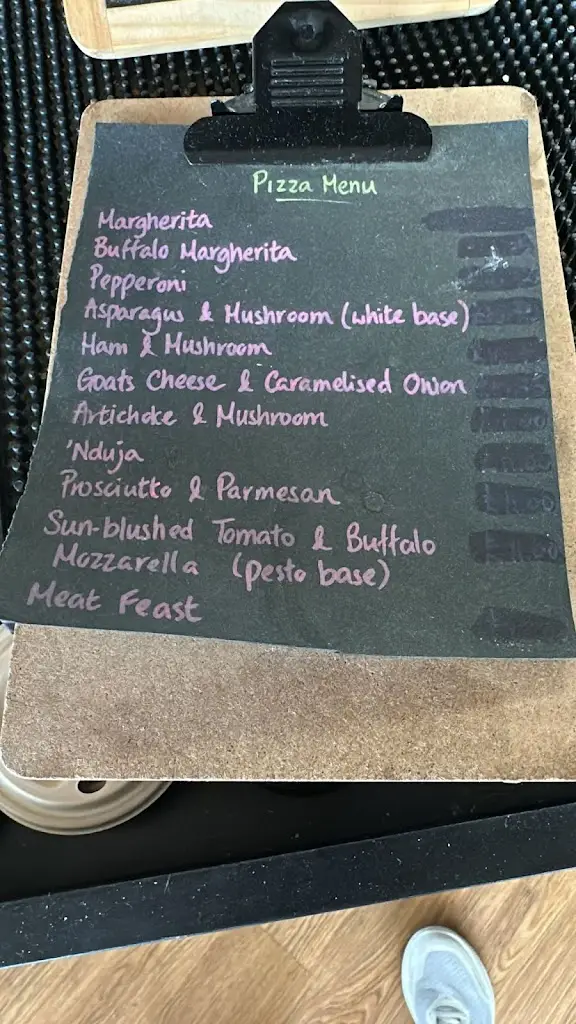 Pizza Menu
Margherita
Buffalo Margherita
Pepperoni
Asparagus & Mushroom (white base)
Ham & Mushroom
Goats Cheese & Caramelised Onion
Artichoke & Mushroom
'Nduja
Prosciutto & Parmesan
Sun-blushed Tomato & Buffalo
Mozzarella (pesto base)
Meat Feast